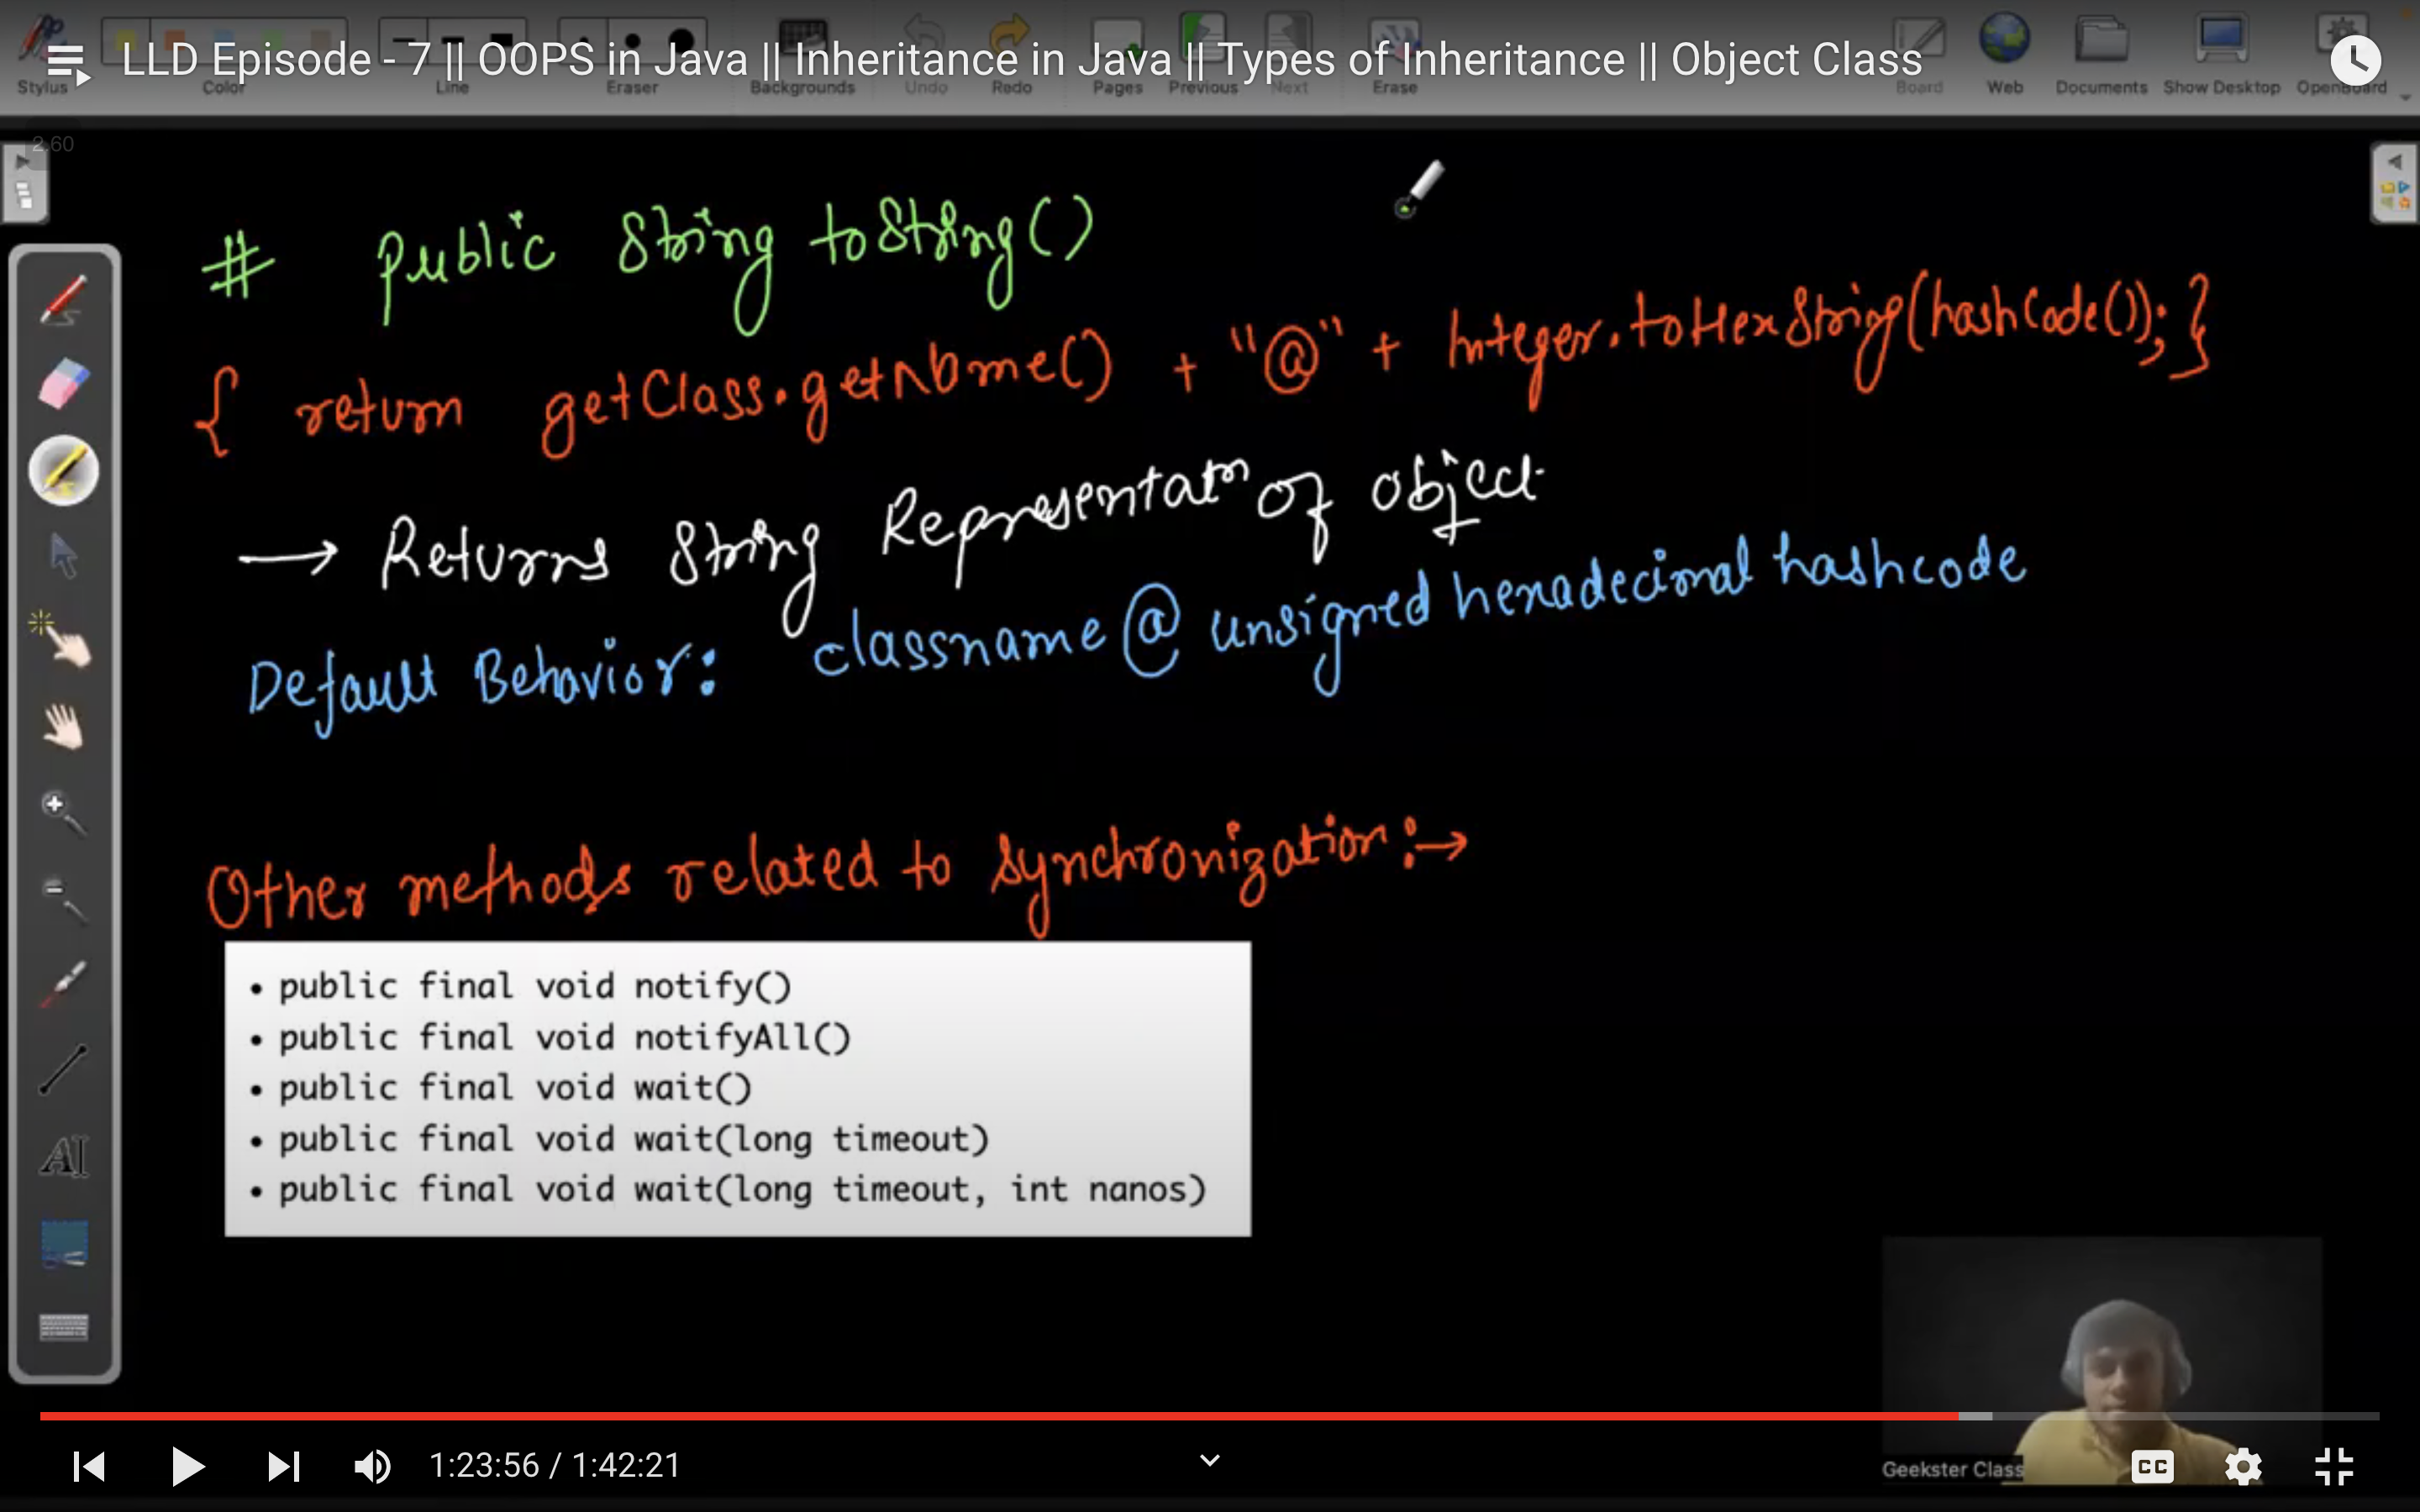 LLD Episode - 7 || OOPS in Java || Inheritance in Java || Types of Inheritance || Object Class
Stylus Color Line Eraser Backgrounds Undo Redo Pages Previous Next Erase Board Web Documents Show Desktop OpenBoard
2.60
# public String toString()
{ return getClass.getName() + "@" + Integer.toHexString(hashCode()); }
→ Returns String Representatn of object
Default Behavior: classname @ unsigned hexadecimal hashcode
Other methods related to synchronization :→
• public final void notify()
• public final void notifyAll()
• public final void wait()
• public final void wait(long timeout)
• public final void wait(long timeout, int nanos)
AI
Geekster Class
1:23:56 / 1:42:21
CC